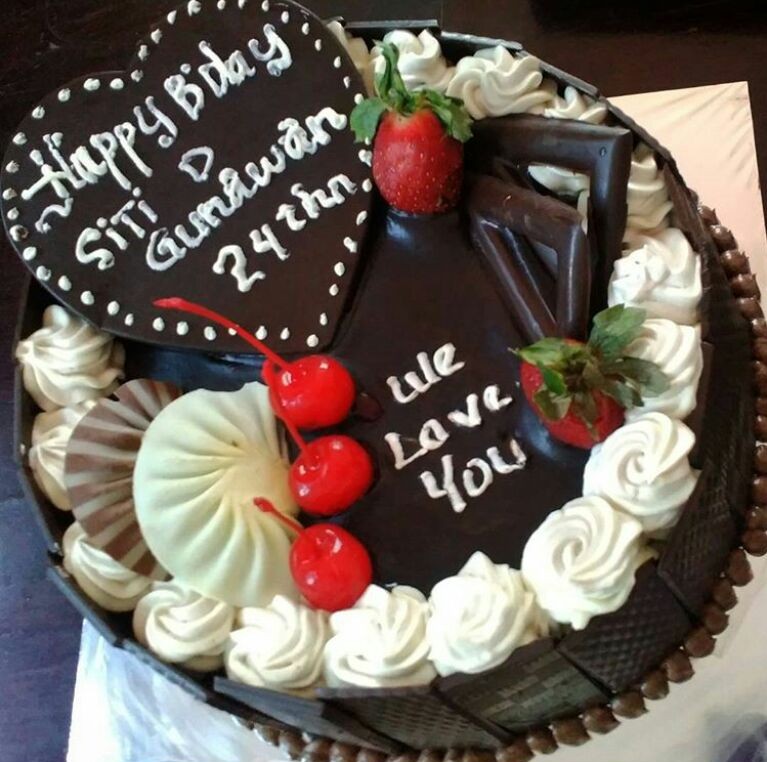 Happy Bday
Siti D
Gunawan
24 thn
We
Love
You